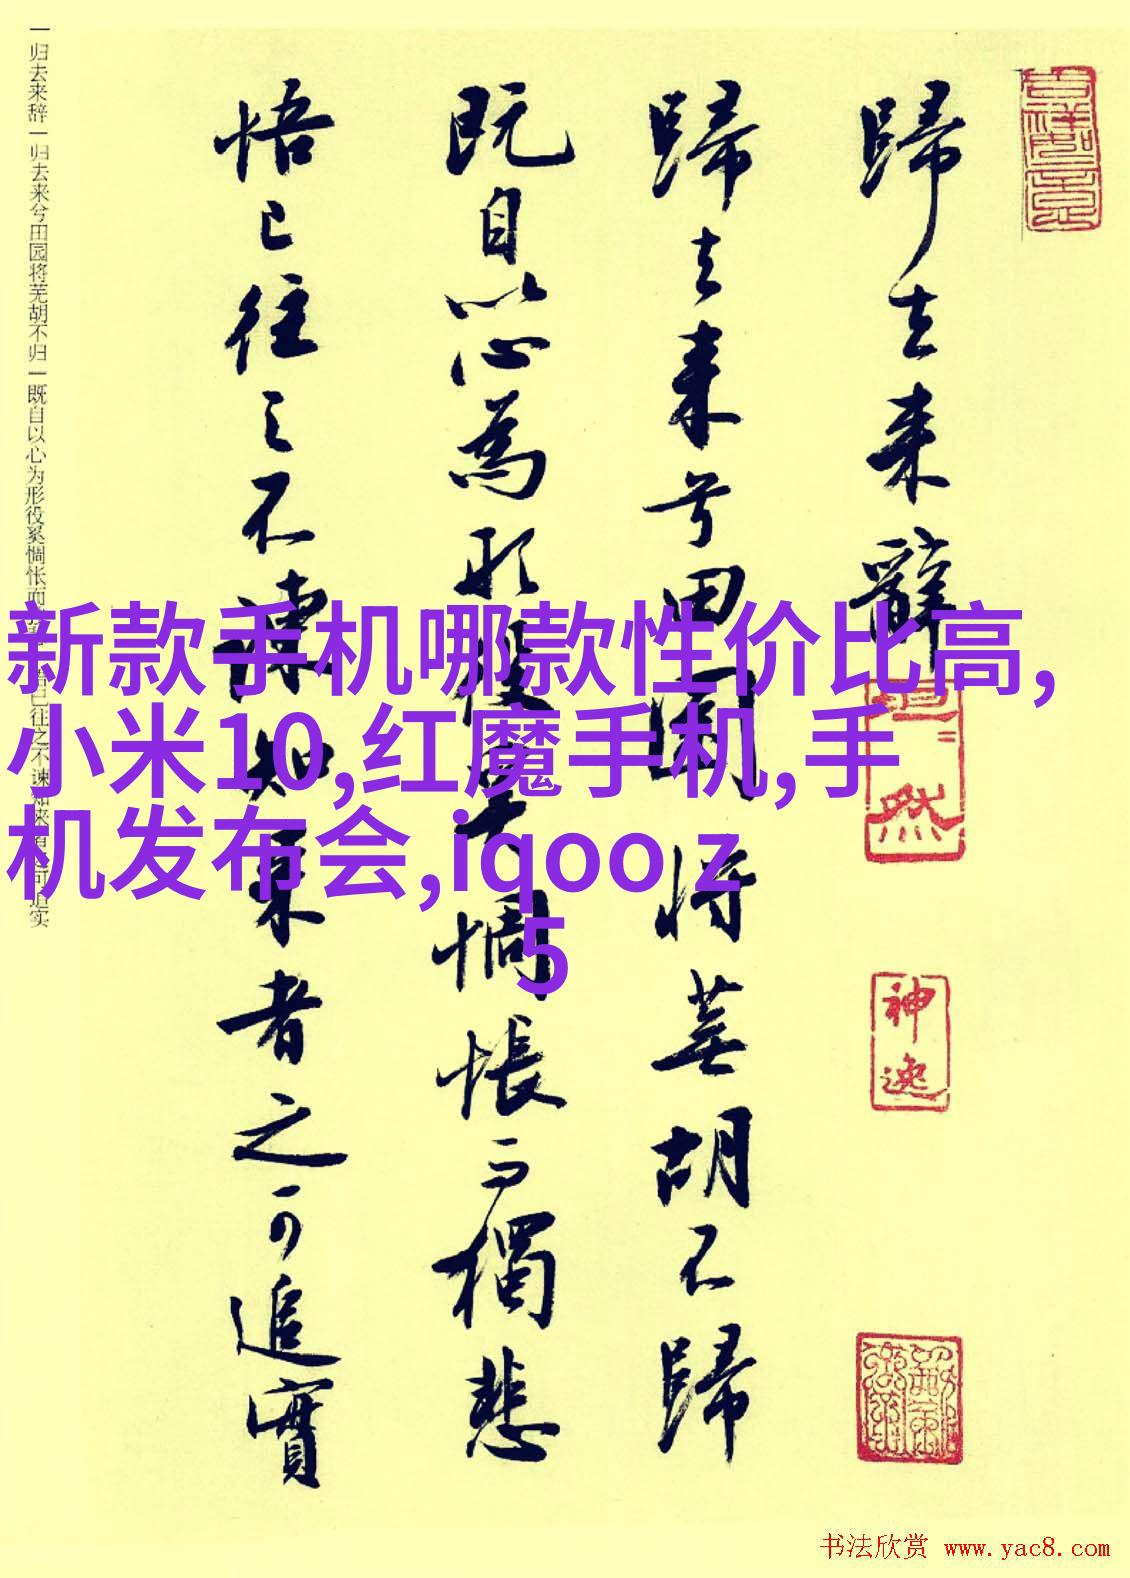 歸去来辭
歸去来兮田園将蕪胡不歸
既自以心為形役奚惆悵而獨悲
悟已往之不諫知来者之可追實
一归去来辞一归去来兮田园将芜胡不归一既自以心为形役奚惆怅而
已往之不谏知来者
可追实
新款手机哪款性价比高,
小米10,红魔手机,手
机发布会,iqoo z
5
神逸
然
书法欣赏 www.yac8.com